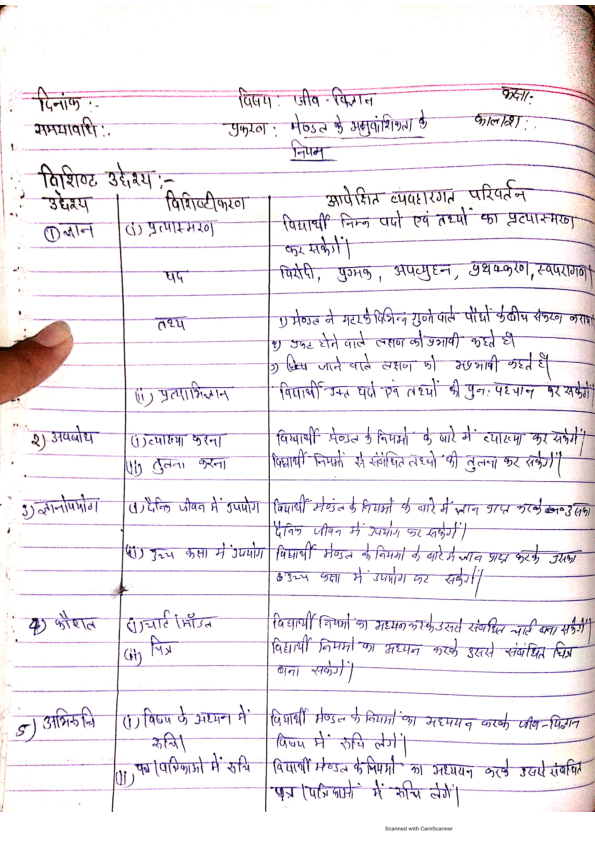 दिनांक :- विषय : जीव - विज्ञान कक्षा :
समयावधि :. प्रकरण : मेण्डल के अनुवांशिकता के कालांश : .
नियम
विशिष्ट उद्देश्य :-
उद्देश्य विशिष्टीकरण आपेक्षित व्यवहारगत परिवर्तन
① ज्ञान (i) प्रत्यास्मरण विद्यार्थी निम्न पदों एवं तथ्यों का प्रत्यास्मरण
कर सकेगें|
पद विरोधी, युग्मक, अपव्युहन, पृथक्करण, स्वपरागण|
तथ्य 1) मेण्डल ने मटर के विभिन्न गुणों वाले पौधों के बीच संकरण कराया
2) प्रकट होने वाले लक्षण को प्रभावी कहते है।
3) छिप जाने वाले लक्षण को अप्रभावी कहते है|
(ii) प्रत्याभिज्ञान विद्यार्थी उक्त पदों एवं तथ्यों की पुन: पहचान कर सकेगें|
2) अवबोध (i) व्याख्या करना विद्यार्थी मेण्डल के नियमों के बारे में व्याख्या कर सकेगें|
(ii) तुलना करना विद्यार्थी नियमों से संबंधित तथ्यों की तुलना कर सकेगें|
3) ज्ञानोपयोग (i) दैनिक जीवन में उपयोग विद्यार्थी मेण्डल के नियमों के बारे में ज्ञान प्राप्त करके उसका
दैनिक जीवन में उपयोग कर सकेगें|
(ii) उच्च कक्षा में उपयोग विद्यार्थी मेण्डल के नियमों के बारे में ज्ञान प्राप्त करके उसका
उच्च कक्षा में उपयोग कर सकेगें|
4) कौशल (i) चार्ट/मॉडल विद्यार्थी नियमों का अध्यन करके उससे संबंधित चार्ट बना सकेगें|
(ii) चित्र विद्यार्थी नियमों का अध्यन करके उससे संबंधित चित्र
बना सकेगें|
5) अभिरूचि (i) विषय के अध्यन में विद्यार्थी मेण्डल के नियमों का अध्ययन करके जीव-विज्ञान
रूचि| विषय में रूचि लेगें|
(ii) पत्र/पत्रिकाओं में रूचि विद्यार्थी मेण्डल के नियमों का अध्ययन करके उससे संबंधित
पत्र/पत्रिकाओं में रूचि लेगें|
Scanned with CamScanner